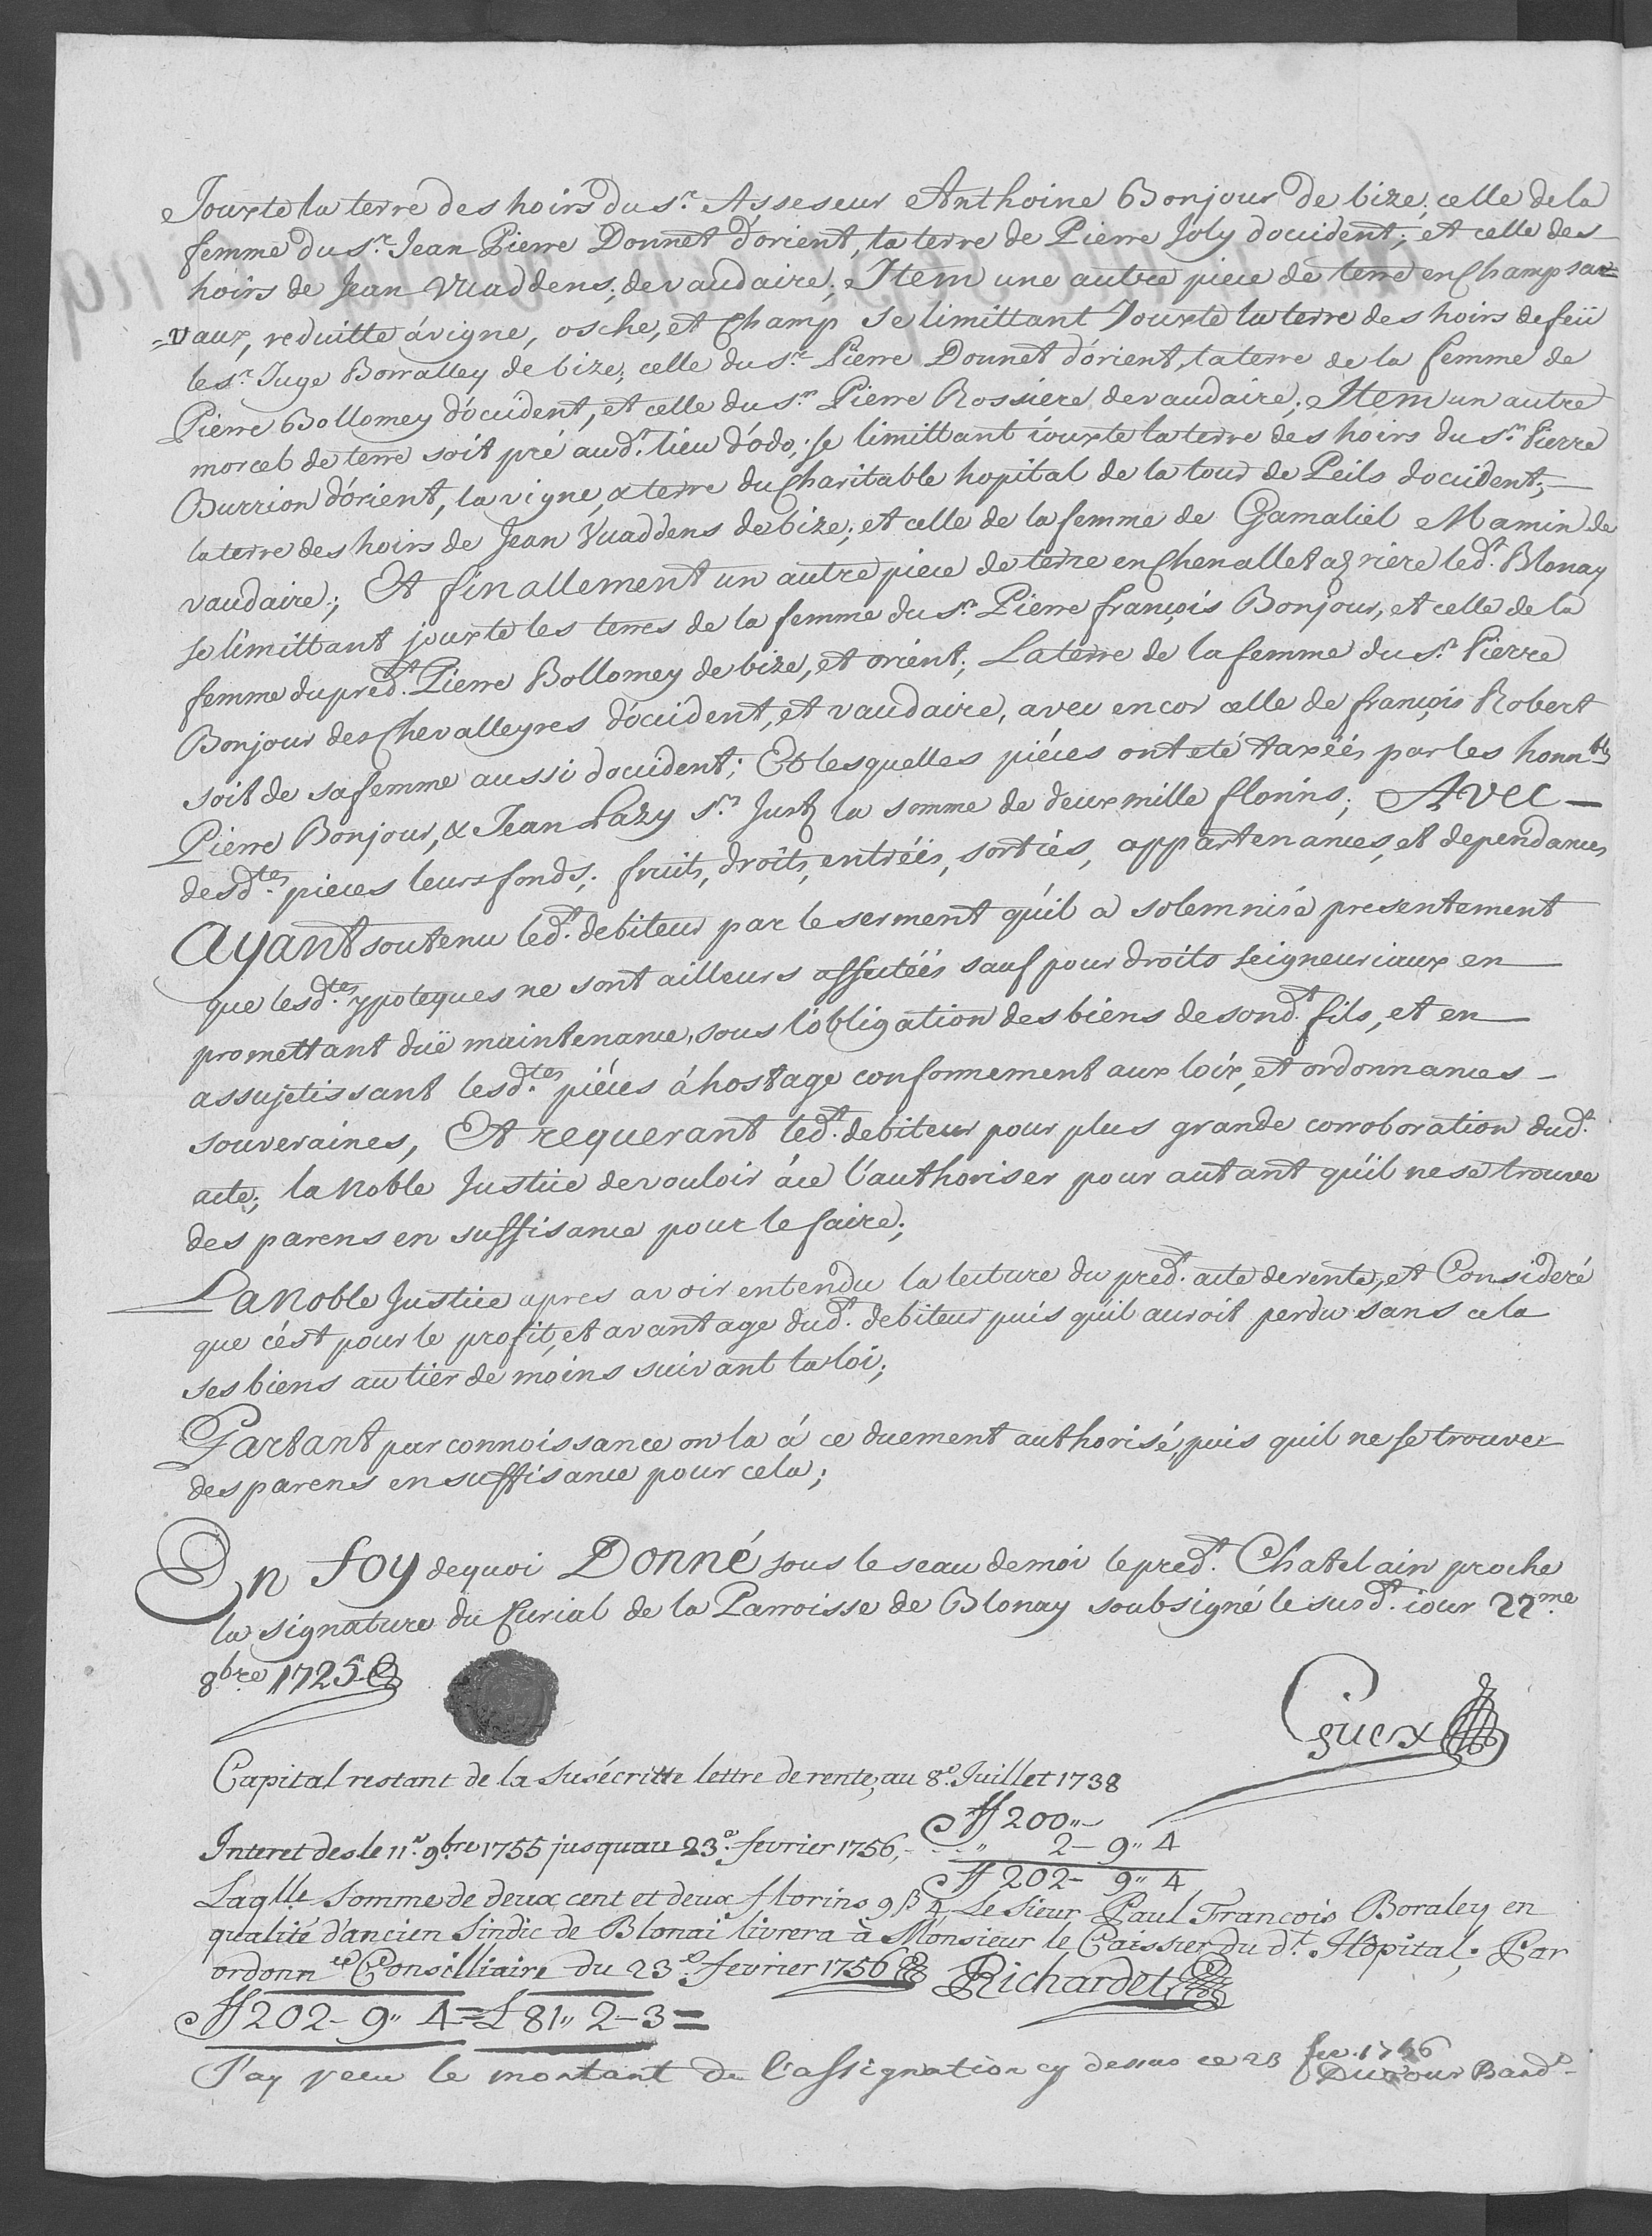 Jouxte la terre des hoirs du s.r Assesseur Anthoine Bonjour de bize; celle de la
femme du s.r Jean Pierre Donnet d'orient, la terre de Pierre Joly d'occident; et celle des
hoirs de Jean Vuaddens; de vaudaire; Item une autre piece de terre en Champ sau=
=vaux, reduitte à vigne, osche, et Champ se limittant Jouxte la terre des hoirs de feü
le s.r Juge Borralley de bize; celle du s.r Pierre Donnet d'orient, la terre de la femme de
Pierre Bollomey d'occident, et celle du s.r Pierre Rossiere de vaudaire; Item un autre
morcel de terre soit pré aud.t lieu d'odo; se limittant iouxte la terre des hoirs du s.r Pierre
Burrion d'orient, la vigne, & terre du Charitable hopital de la tour de Peils d'occident;
la terre des hoirs de Jean Vuaddens de bize; et celle de la femme de Gamaliel Mamin de
vaudaire; Et finallement un autre piece de terre en Chenalletaz riere led.t Blonay
se limittant jouxte les terres de la femme du s.r Pierre françois Bonjour, et celle de la
femme dupred.t Pierre Bollomey de bize, et orient; La terre de la femme du s.r Pierre
Bonjour des Chevalleyres d'occident, et vaudaire, avec encor celle de françois Robert
soit de sa femme aussi d'occident; Et lesquelles piéces ont eté taxéés par les honn.bles
Pierre Bonjour, & Jean Lazy s.rs Jurez la somme de deux mille florins; Avec
desd.tes pieces leurs fonds; fruits, droits, entréés, sortiés, appartenances, et dependances
Ayant soutenu led.t debiteur par le serment qu'il a solemnisé presentement
que lesd.tes ypoteques ne sont ailleurs affectéés sauf pour droits seigneuriaux en
promettant düe maintenance, sous l'obligation des biens de sond.t fils, et en
assujetissant lesd.tes piéces à hostage conformement aux loix, et ordonnances
souveraines, Et requerant led.t debiteur pour plus grande corroboration dud.t
acte; la Noble Justice de vouloir à ce l'authoriser pour autant qu'il ne se trouve
des parens en suffisance pour le faire;
La Noble Justice apres avoir entendu la lecture du pred.t acte de rente, et Consideré
que c'est pour le profit, et avantage dud.t debiteur puis qu'il auroit perdu sans cela
ses biens au tier de moins suivant la loi;
Partant par connoissance on la à ce duement authorisé, puis quil ne se trouve
des parens en suffisance pour cela;
En foy dequoi Donné sous le seau de moi le pred.t Chatelain proche
la signature du Curial de la Parroisse de Blonay soubsigné le susd.t iour 22.me
8.bre 1725
Guex
Capital restant de la susécritte lettre de rente, au 8.e Juillet 1738
ff 200,,-
Interet des le 11.e 9.bre 1755 jusquau 23.e fevrier 1756, ,, 2- 9,, 4
ff 202- 9,, 4
Laq.lle Somme de deux cent et deux florins 9 ß 4 Le Sieur Paul François Boraley en
qualité d'ancien Sindic de Blonai livrera à Monsieur le Caissier du d.t Hôpital; Par
ordonn.ce Consilliaire du 23.e fevrier 1756 Richardet
ff 202- 9,, 4 = L 81,, 2- 3 =
J'ay receu le montant de l'assignation cy dessus ce 23 fev. 1756
Dufour Band.t